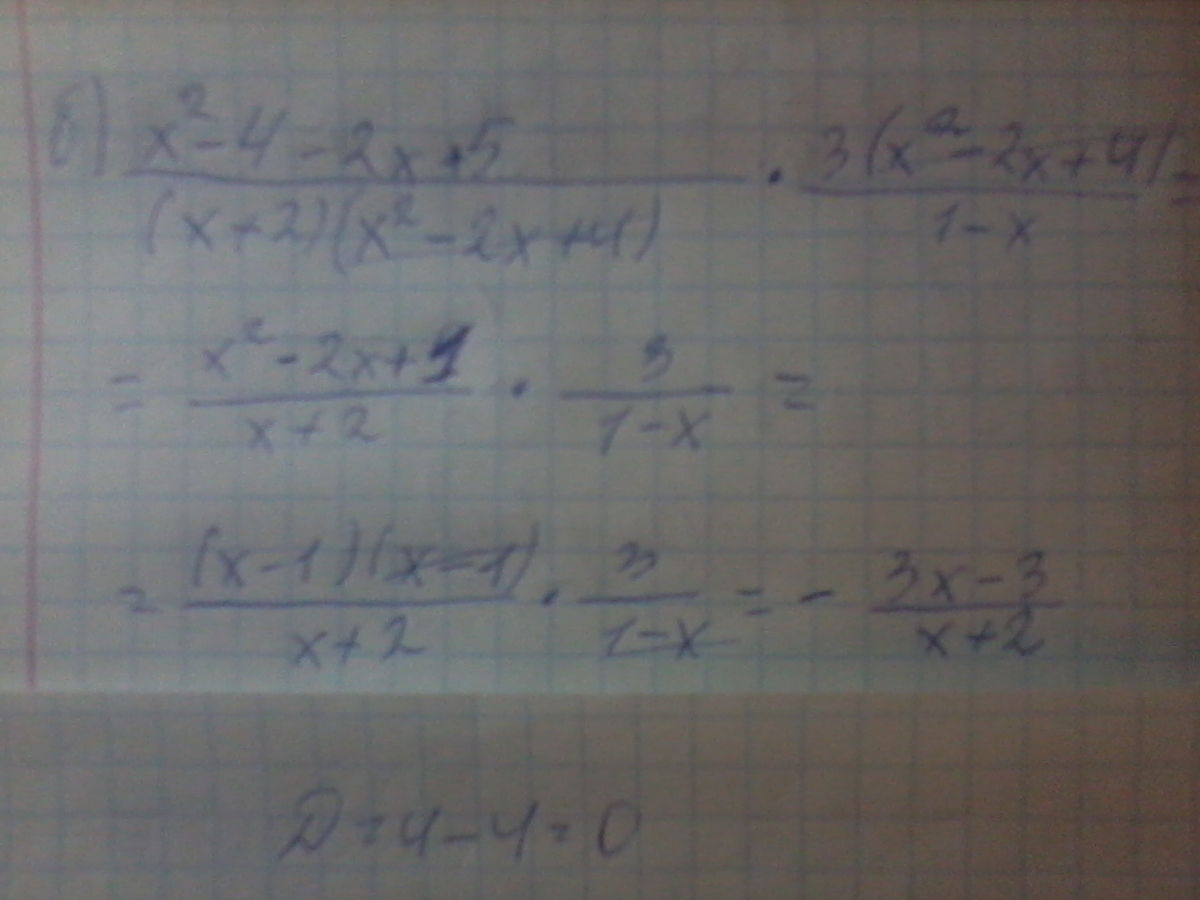 б) (x² - 4 - 2x + 5) / ((x + 2)(x² - 2x + 4)) · (3(x² - 2x + 4)) / (1 - x) =
= (x² - 2x + 1) / (x + 2) · 3 / (1 - x) =
= ((x - 1)(x - 1)) / (x + 2) · 3 / (1 - x) = - (3x - 3) / (x + 2)
D = 4 - 4 = 0